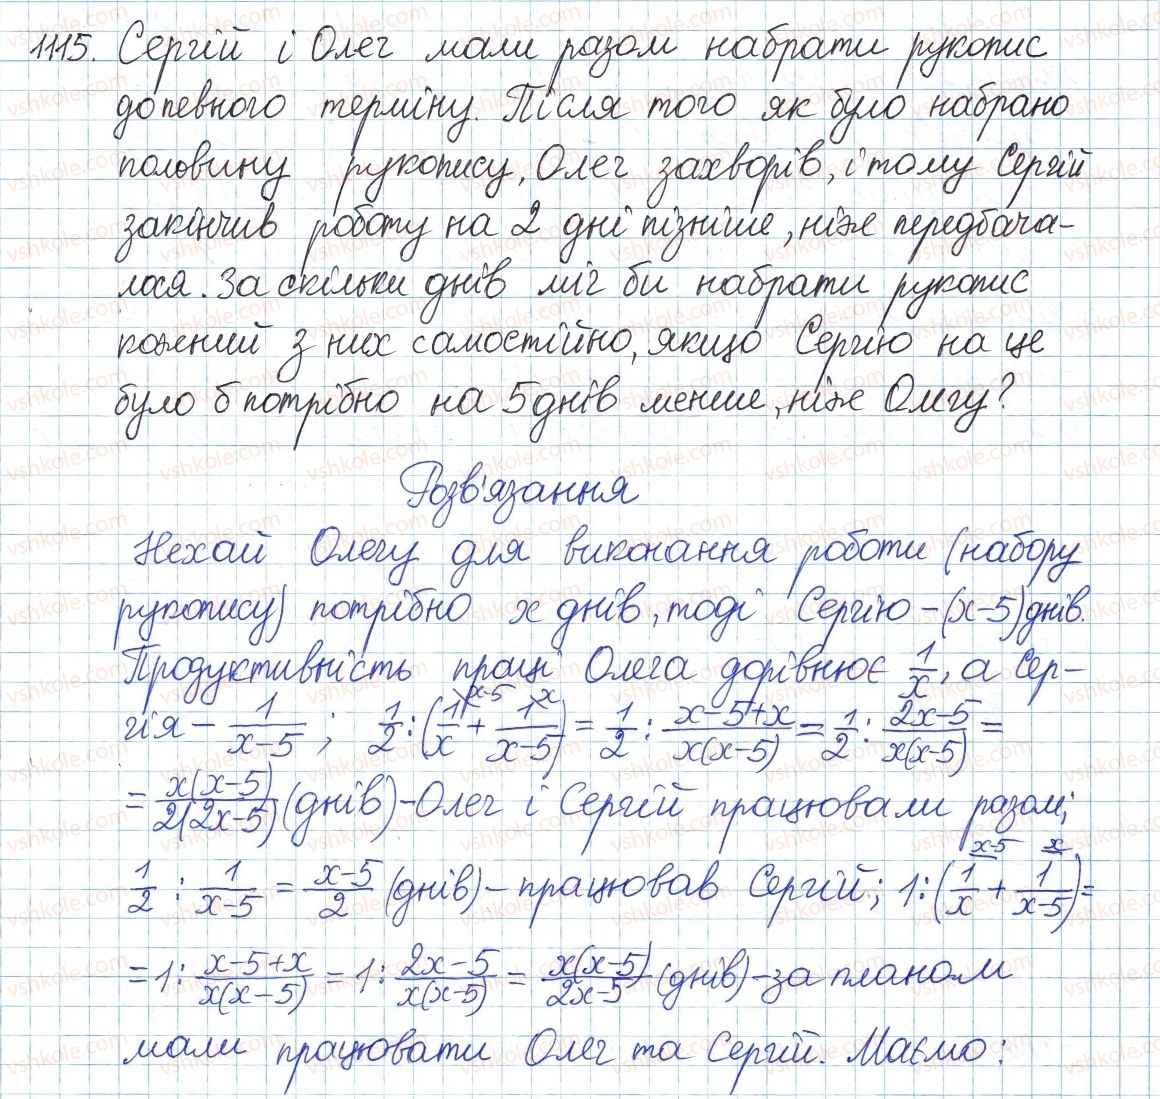 1115. Сергій і Олег мали разом набрати рукопис
до певного терміну. Після того як було набрано
половину рукопису, Олег захворів, і тому Сергій
закінчив роботу на 2 дні пізніше, ніж передбача-
лося. За скільки днів міг би набрати рукопис
кожний з них самостійно, якщо Сергію на це
було б потрібно на 5 днів менше, ніж Олегу?
Розв'язання
Нехай Олегу для виконання роботи (набору
рукопису) потрібно x днів, тоді Сергію – (x-5) днів.
Продуктивність праці Олега дорівнює 1/x, а Сер-
гія – 1/(x-5); 1/2 : (1/x + 1/(x-5)) = 1/2 : (x-5+x)/(x(x-5)) = 1/2 : (2x-5)/(x(x-5)) =
= x(x-5)/(2(2x-5)) (днів) – Олег і Сергій працювали разом;
1/2 : 1/(x-5) = (x-5)/2 (днів) – працював Сергій; 1 : (1/x + 1/(x-5)) =
= 1 : (x-5+x)/(x(x-5)) = 1 : (2x-5)/(x(x-5)) = x(x-5)/(2x-5) (днів) – за планом
мали працювати Олег та Сергій. Маємо: